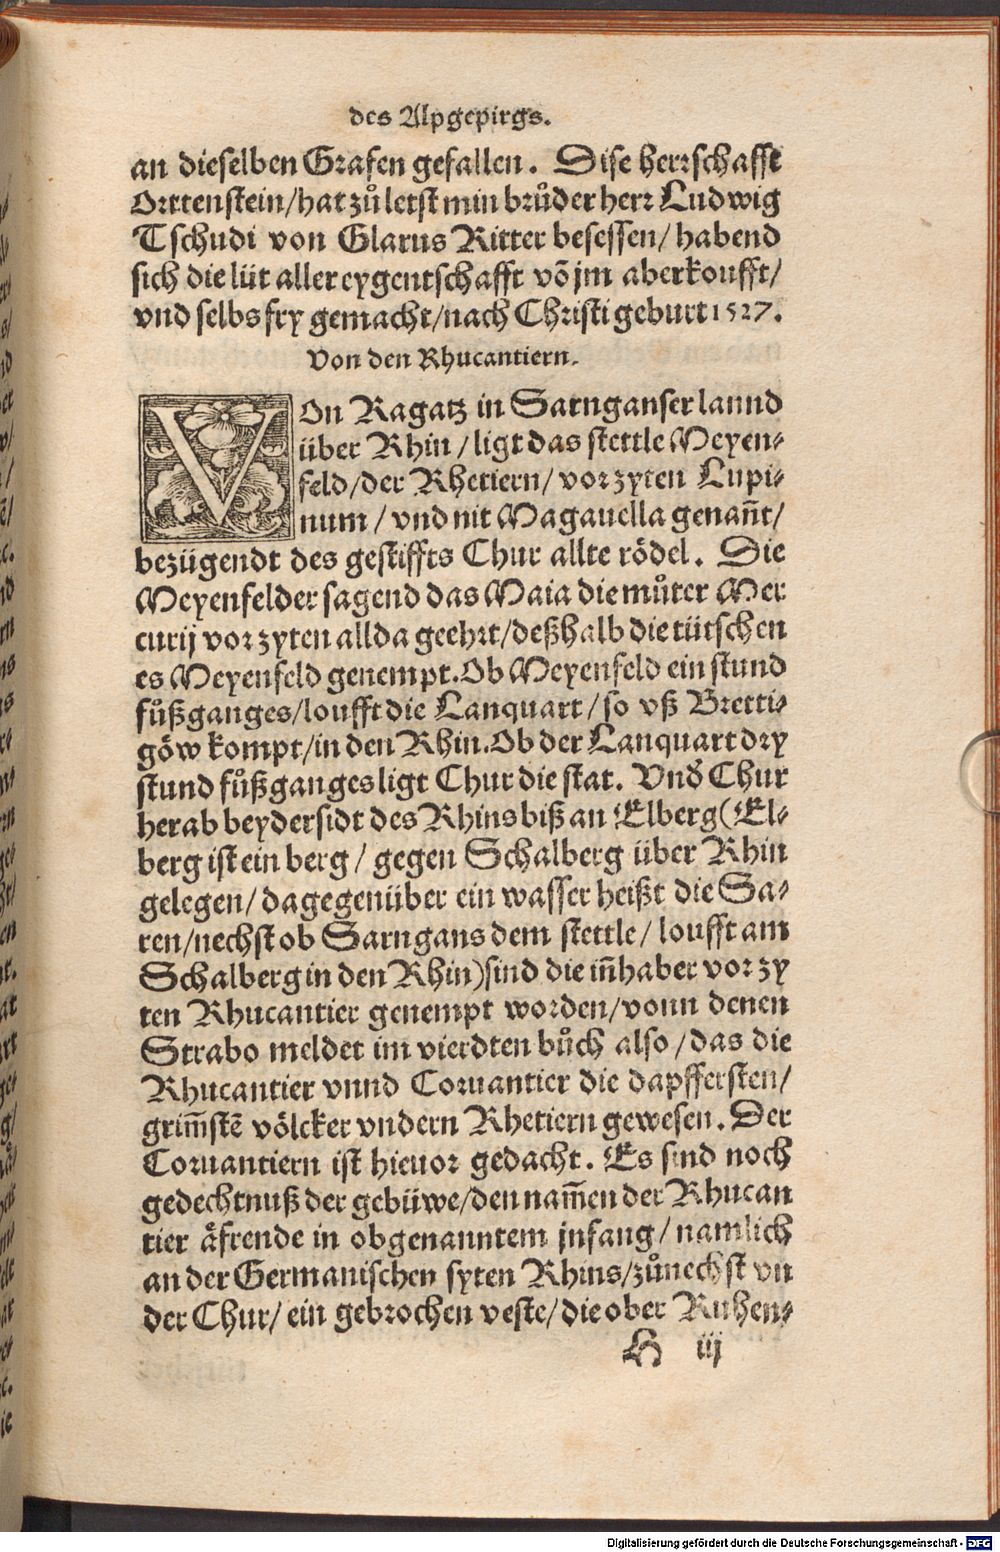 des Alpgepirgs.
an dieselben Grafen gefallen. Dise herrschafft
Orttenstein/hat zů letst min brůder herr Ludwig
Tschudi von Glarus Ritter besessen/habend
sich die lüt aller eygentschafft võ jm aberkoufft/
vnd selbs fry gemacht/nach Christi geburt 1527.
Von den Rhucantiern.
VOn Ragatz in Sarnganser lannd
über Rhin/ligt das stettle Meyen⸗
feld/der Rhetiern/vor zyten Lupi⸗
num/vnd nit Magauella genañt/
bezügendt des gestiffts Chur allte rödel. Die
Meyenfelder sagend das Maia die můter Mer
curij vor zyten allda geehrt/deßhalb die tütschen
es Meyenfeld genempt. Ob Meyenfeld ein stund
fůßganges/loufft die Lanquart/so vß Bretti⸗
göw kompt/in den Rhin. Ob der Lanquart dry
stund fůßganges ligt Chur die stat. Vnd Chur
herab beydersidt des Rhins biß an Elberg(El⸗
berg ist ein berg/gegen Schalberg über Rhin
gelegen/dagegenüber ein wasser heißt die Sa⸗
ren/nechst ob Sarngans dem stettle/loufft am
Schalberg in den Rhin)sind die iñhaber vor zy
ten Rhucantier genempt worden/vonn denen
Strabo meldet im vierdten bůch also/das die
Rhucantier vnnd Coruantier die dapffersten/
grim̃stẽ völcker vndern Rhetiern gewesen. Der
Coruantiern ist hieuor gedacht. Es sind noch
gedechtnuß der gebüwe/den nam̃en der Rhucan
tier äfrende in obgenanntem jnfang/namlich
an der Germanischen syten Rhins/zůnechst vn
der Chur/ein gebrochen veste/die ober Ruhen⸗
H iij
Digitalisierung gefördert durch die Deutsche Forschungsgemeinschaft - DFG